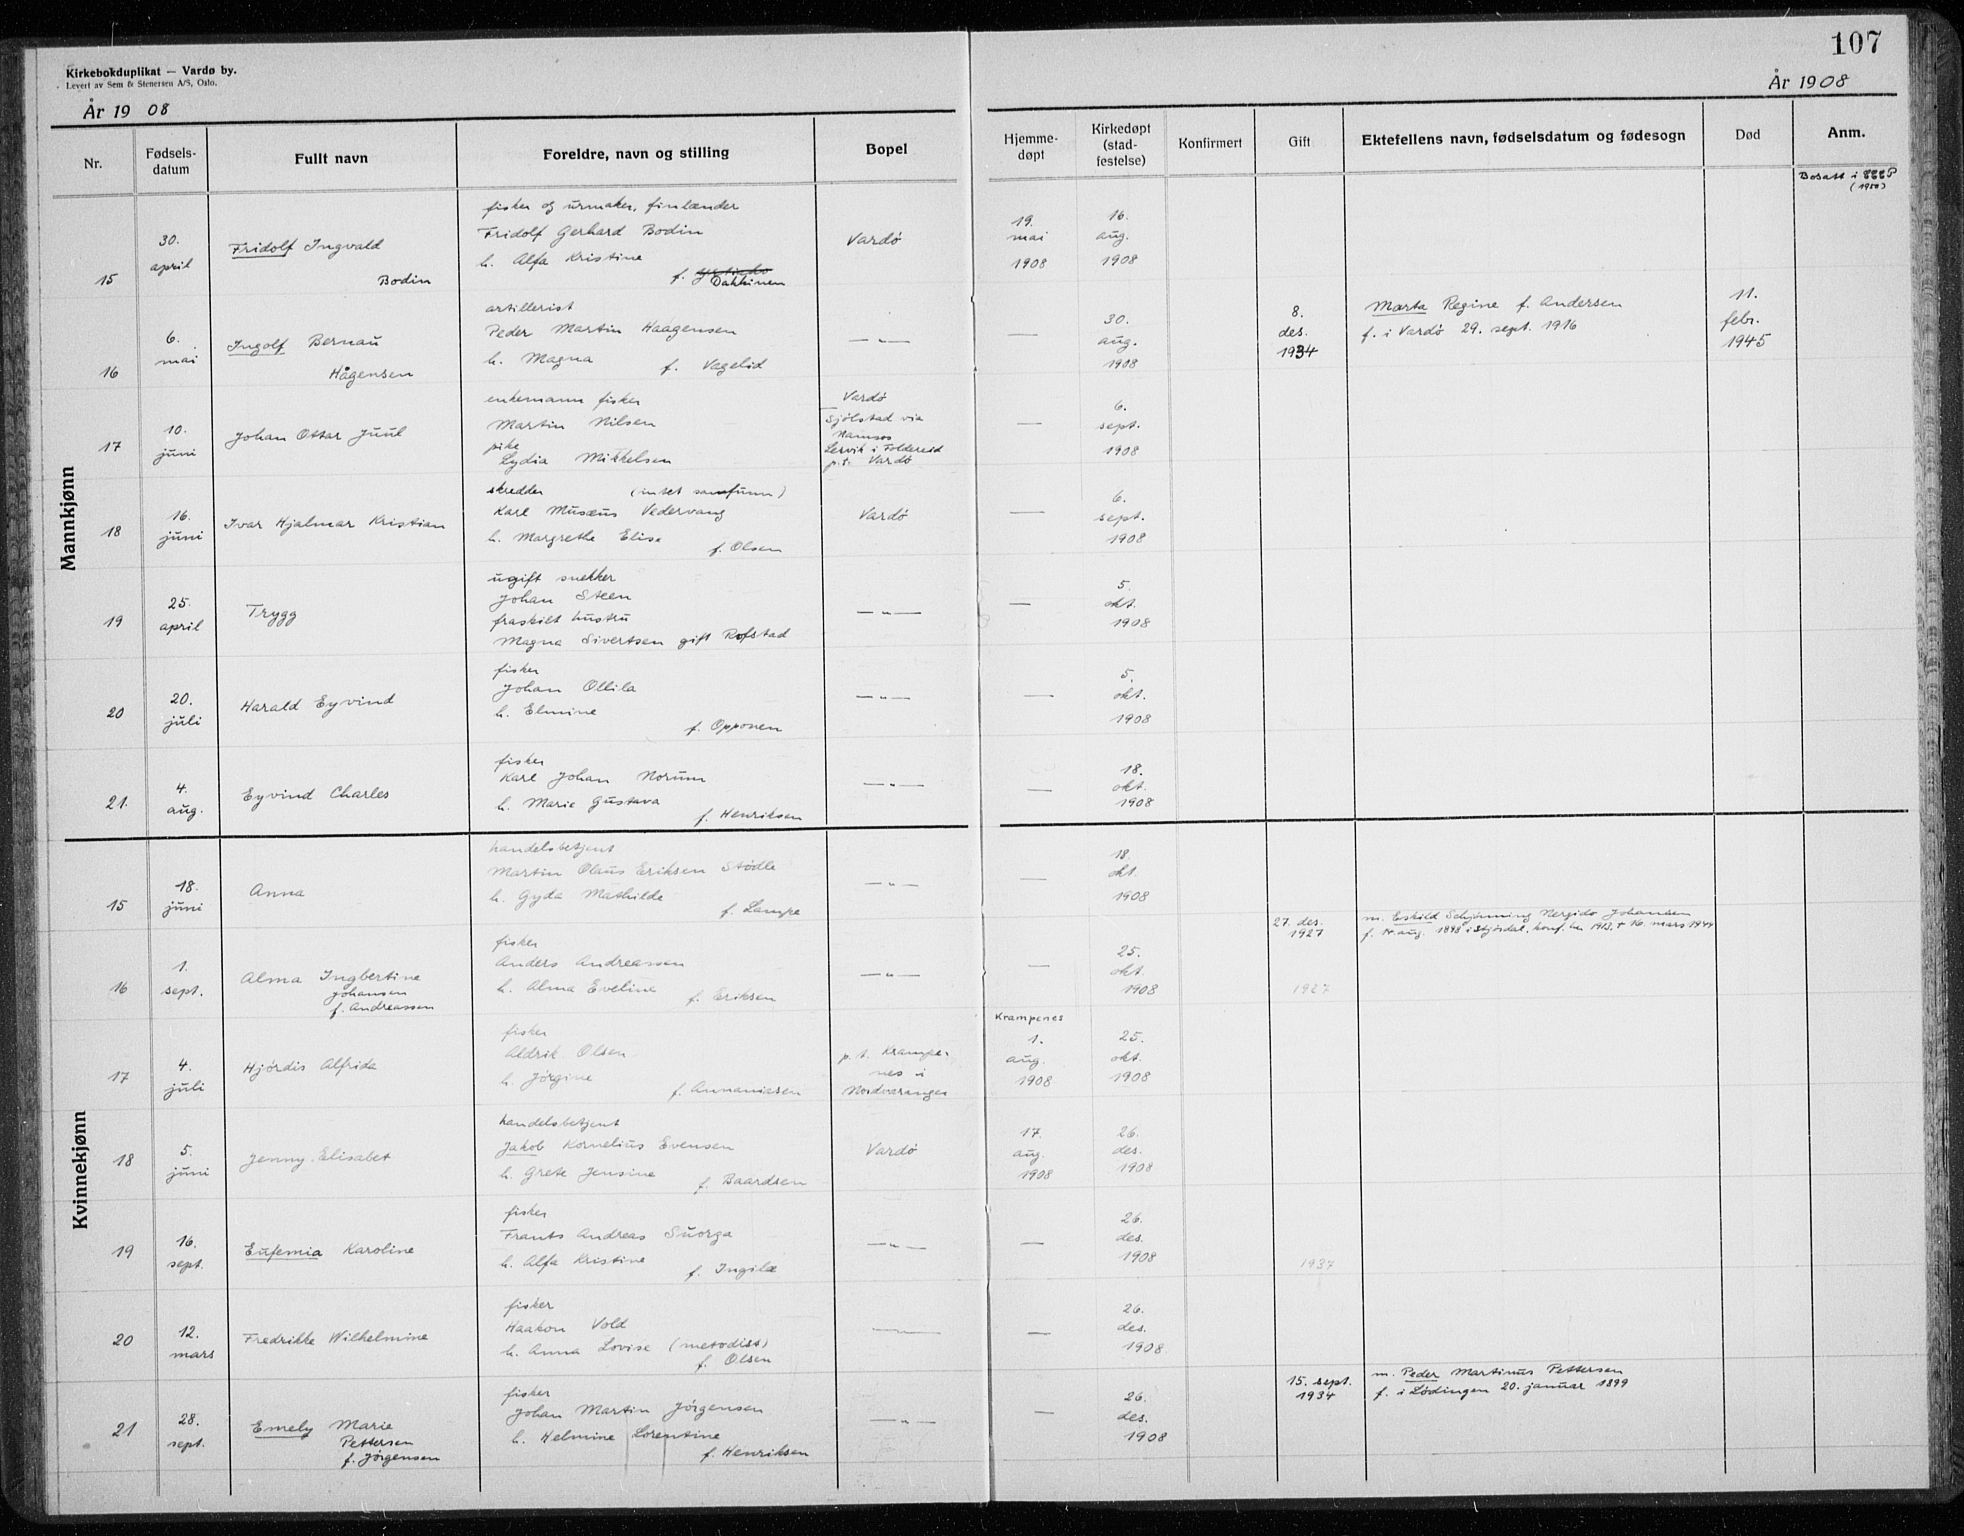 107
Kirkebokduplikat — Vardø by.
Levert av Sem & Stenersen A/S, Oslo.
År 19 08
År 1908
Nr.
Fødsels-
datum
Fullt navn
Foreldre, navn og stilling
Bopel
Hjemme-
døpt
Kirkedøpt
(stad-
festelse)
Konfirmert
Gift
Ektefellens navn, fødselsdatum og fødesogn
Død
Anm.
Mannkjønn
15
30.
april
Fridolf Ingvald
Bodin
fisker og urmaker, finlænder
Fridolf Gerhard Bodin
h. Alfa Kristine
f. Dahkinen
Vardö
19.
mai
1908
16.
aug.
1908
Bosatt i
(1950)
16
6.
mai
Ingolf Bernau
Hågensen
artillerist
Peder Martin Haagensen
h. Magna f. Vagelid
— " —
—
30.
aug.
1908
8.
des.
1934
Marta Regine f. Andersen
f. i Vardö 29. sept. 1916
11.
febr.
1945
17
10.
juni
Johan Ottar Juul
enkemann fisker
Martin Nilsen
pike
Lydia Mikkelsen
Vardö
Sjölstad via
Namsos
Lervik i Foldereid
p.t. Vardö
—
6.
sept.
1908
18
16.
juni
Ivar Hjalmar Kristian
skredder (intet samfunn)
Karl Musæus Vedervang
h. Margrethe Elise
f. Olsen
Vardö
—
6.
sept.
1908
19
25.
april
Trygg
ugift snekker
Johan Steen
fraskilt hustru
Magna Sivertsen gift Rofstad
— " —
—
5.
okt.
1908
20
20.
juli
Harald Eyvind
fisker
Johan Ollila
h. Elmine
f. Opponen
— " —
—
5.
okt.
1908
21.
4.
aug.
Eyvind Charles
fisker
Karl Johan Norum
h. Marie Gustava
f. Henriksen
— " —
—
18.
okt.
1908
Kvinnekjønn
15
18.
juni
Anna
handelsbetjent
Martin Olaus Eriksen Stödle
h. Gyda Mathilde
f. Lampe
— " —
—
18.
okt.
1908
16
1.
sept.
Alma Ingbertine
Johansen
f. Andreassen
fisker
Anders Andreassen
h. Alma Eveline
f. Eriksen
— " —
—
25.
okt.
1908
27. des.
1927
1927
m. Eskild Schjönning Nergido Johansen
f. 14. aug. 1898 i Stjörsdal, konf. her 1913, + 16. mars 1944
17
4.
juli
Hjördis Alfrida
fisker
Aldrik Olsen
h. Jörgine
f. Annaniasen
p.t. Krampe-
nes i
Nordvaranger
Krampenes
1.
aug.
1908
25.
okt.
1908
18
5.
juni
Jenny Elisabet
handelsbetjent
Jakob Kornelius Evensen
h. Grete Jensine
f. Baardsen
Vardö
17.
aug.
1908
26.
des.
1908
19
16.
sept.
Eufemia Karoline
fisker
Frants Andreas Suorga
h. Alfa Kristine
f. Ingilæ
— " —
—
26.
des.
1908
1937
20
12.
mars
Fredrikke Wilhelmine
fisker
Haakon Vold
h. Anna Lovise (metodist)
f. Olsen
— " —
—
26.
des.
1908
21
28.
sept.
Emely Marie
Pettersen
f. Jörgensen
fisker
Johan Martin Jörgensen
h. Helmine Lorentine
f. Henriksen
— " —
—
26.
des.
1908
15. sept.
1934
m. Peder Martinus Pettersen
f. i Lödingen 20. januar 1899